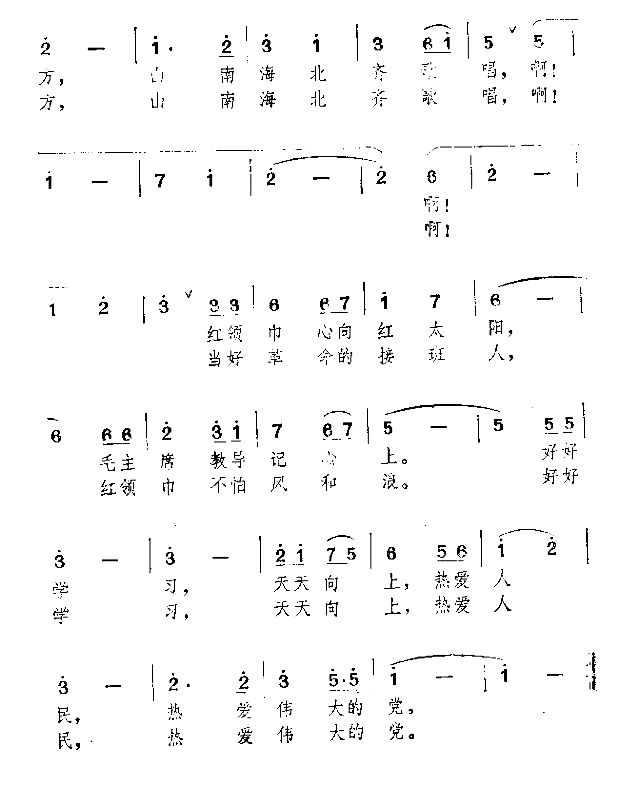 2̇ — | 1̇· 2̇ | 3̇ 1̇ | 3 6 1̇ | 5 ∨ 5 |
方, 山 南 海 北 齐 歌 唱, 啊!
方, 山 南 海 北 齐 歌 唱, 啊!
1̇ — | 7 1̇ | 2̇ — | 2̇ 6 | 2̇ — |
啊!
啊!
1 2̇ | 3̇ ∨ 3̇ 3̇ | 6 6 7 | 1̇ 7 | 6 — |
红领 巾 心向 红 太 阳,
当好 革 命的 接 班 人,
6 6 6 | 2̇ 3̇ 1̇ | 7 6 7 | 5 — | 5 5 5 |
毛主 席 教导 记 心 上。 好好
红领 巾 不怕 风 和 浪。 好好
3̇ — | 3̇ — | 2̇ 1̇ 7 5 | 6 5 6 | 1̇ 2̇ |
学 习, 天天 向 上, 热爱 人
学 习, 天天 向 上, 热爱 人
3̇ — | 2̇· 2̇ | 3̇ 5̇·5̇ | 1̇ — | 1̇ — ‖
民, 热 爱 伟 大的 党,
民, 热 爱 伟 大的 党。